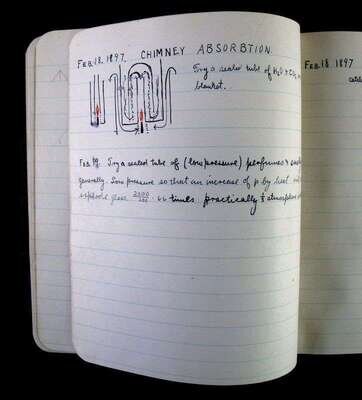 Feb. 18. 1897. CHIMNEY ABSORBTION.
Try a sealed tube of H₂O + CO₂
blanket.
Try a sealed tube of (low pressure) perfumes
generally. Low pressure so that an increase of p by heat
explode glass times practically atmosphere
Feb 18 1897